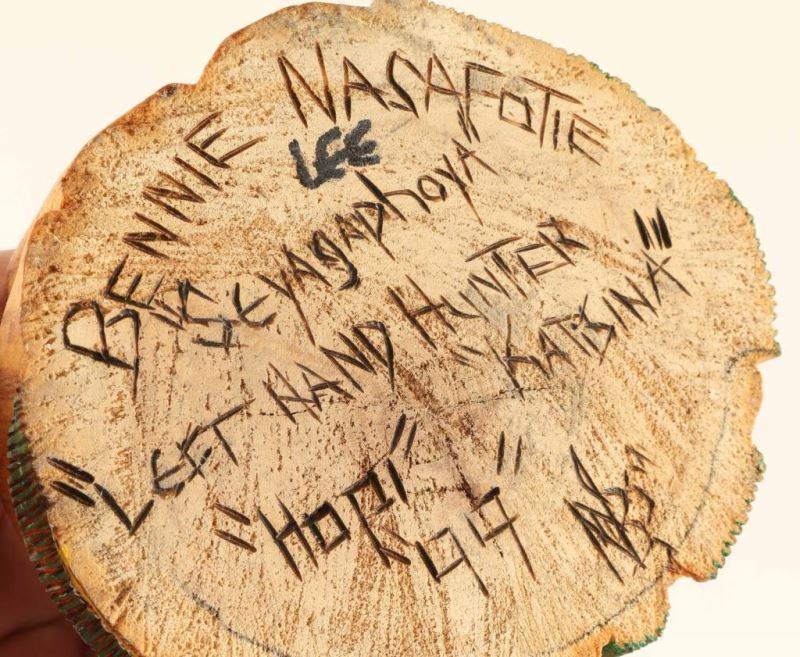 BENNIE NASAFOTIE
LEE
"SEYAGAPHOYA"
"LEFT HAND HUNTER
"KATSINA"
"HOPI" 99"